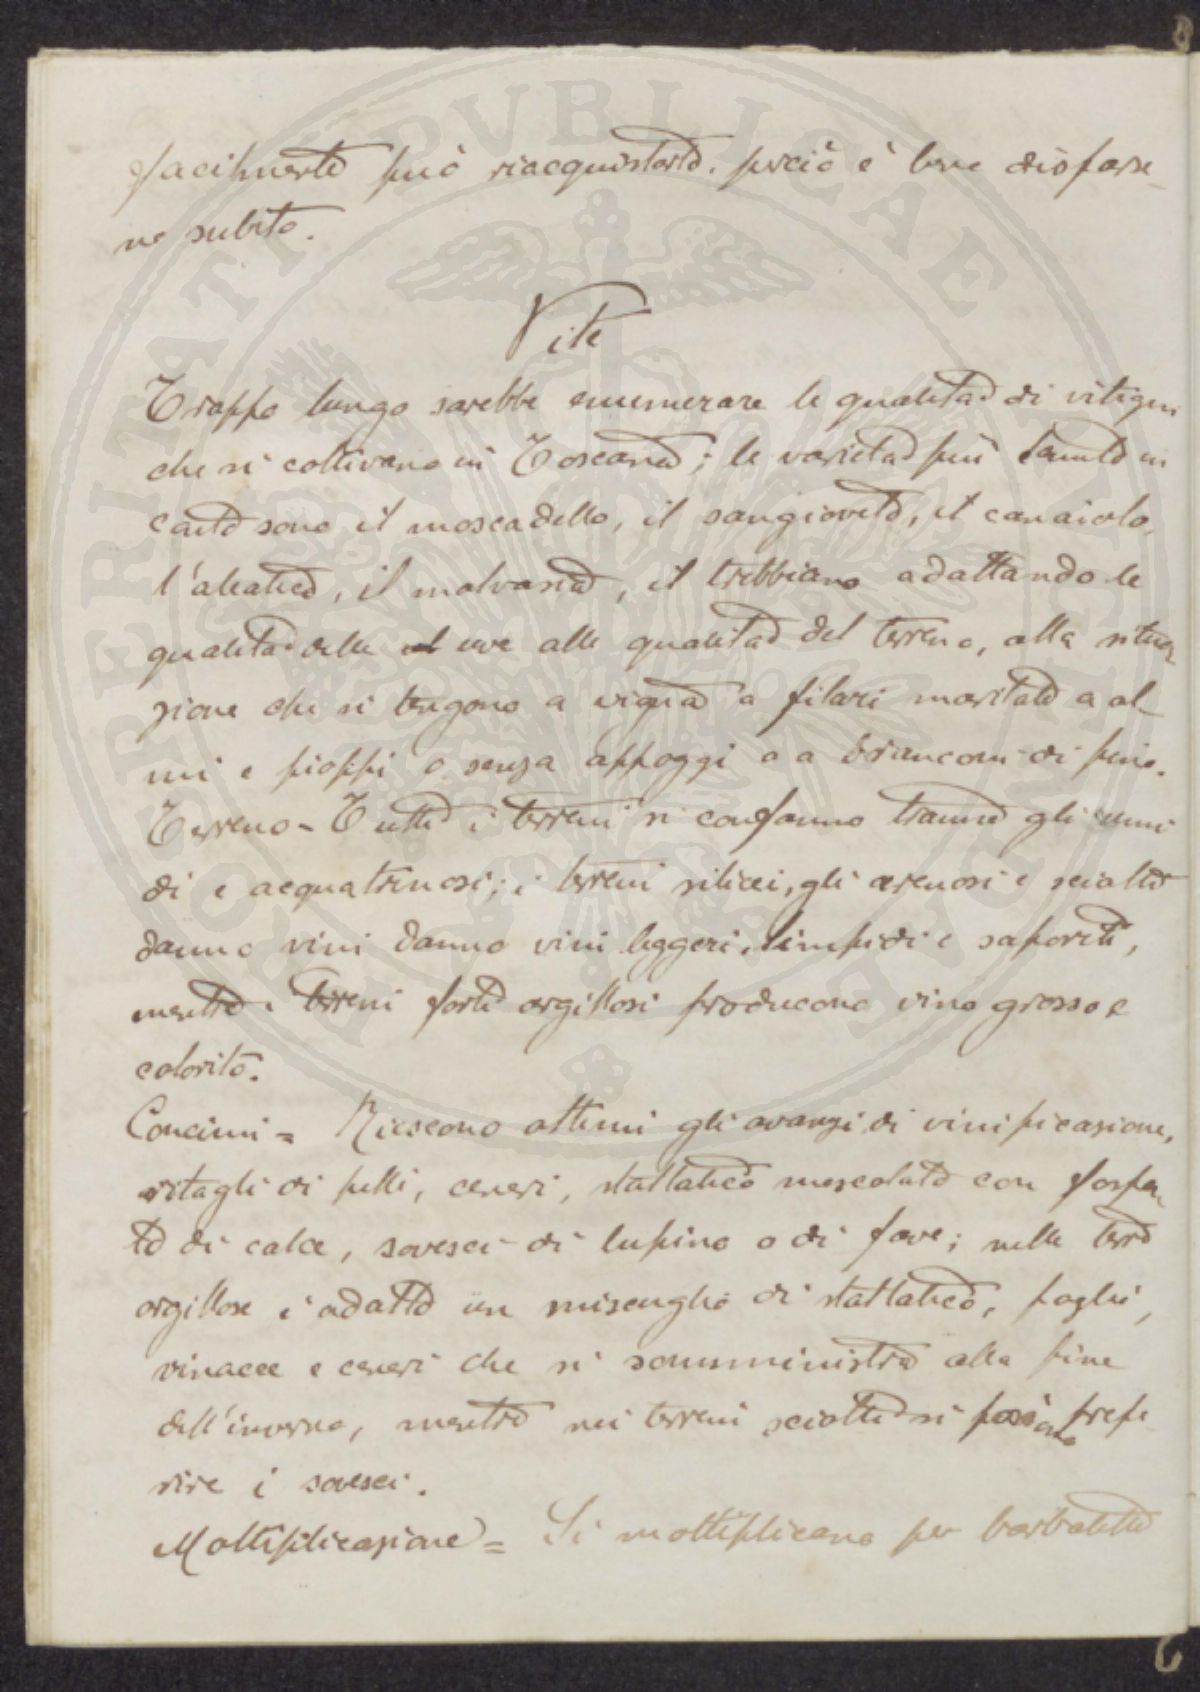 facilmente può riacquistarle. perciò è bene disfarse-
ne subito.
Vite
Troppo lungo sarebbe enumerare le qualità di vitigni
che si coltivano in Toscana; le varietà più tenute in
conto sono il moscadello, il sangioveto, il canaiolo,
l'aleatico, il malvasia, il trebbiano adattando le
qualità delle uve alle qualità del terreno, alla situa-
zione che si tengono a vigna a filari maritate a ol-
mi e pioppi o senza appoggi o a bronconi di pino.
Terreno - Tutti i terreni si confanno tranne gli umi
di e acquatrinosi; i terreni silicei, gli arenosi e sciolti
danno vini danno vini leggeri, limpidi e saporiti,
mentre i terreni forti argillosi producono vino grosso e
colorito.
Concimi = Riescono ottimi gli avanzi di vinificazione,
ritagli di pelli, ceneri, stallatico mescolato con fosfa-
to di calce, sovesci di lupino o di fave; nelle terre
argillose è adatto un miscuglio di stallatico, foglie,
vinacce e ceneri che si somministra alla fine
dell'inverno, mentre nei terreni sciolti si possono prefe
rire i sovesci.
Moltiplicazione = Si moltiplicano per barbatelle